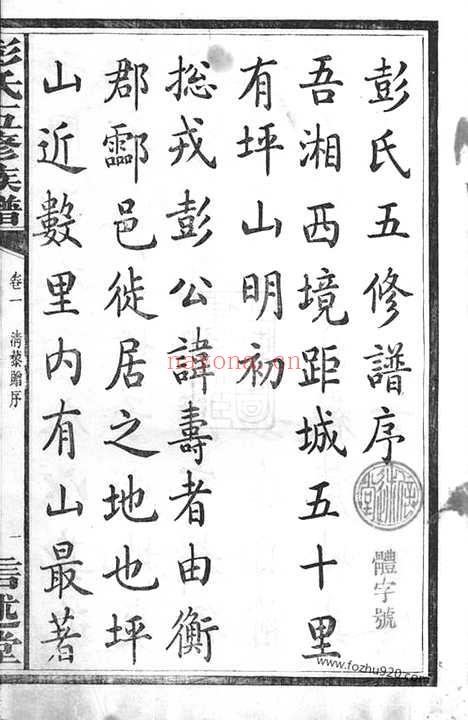 彭氏五修譜序
吾湘西境距城五十里
有坪山明初
總戎彭公諱壽者由衡
郡酃邑徙居之地也坪
山近數里內有山最著
彭氏五修族譜
卷一
清藜贈序
一
言述堂
體字號
nayona.cn
www.fozhu920.com